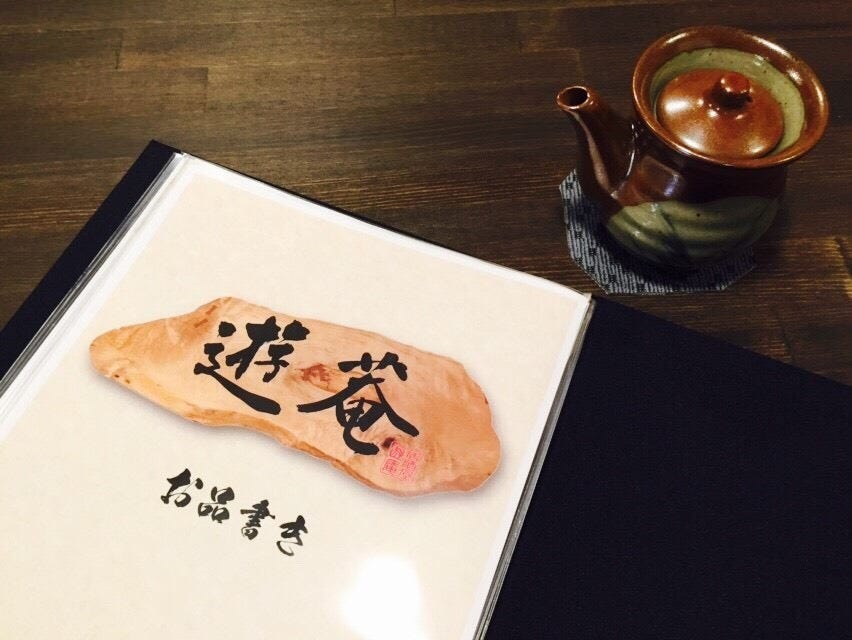 遊菴
お品書き